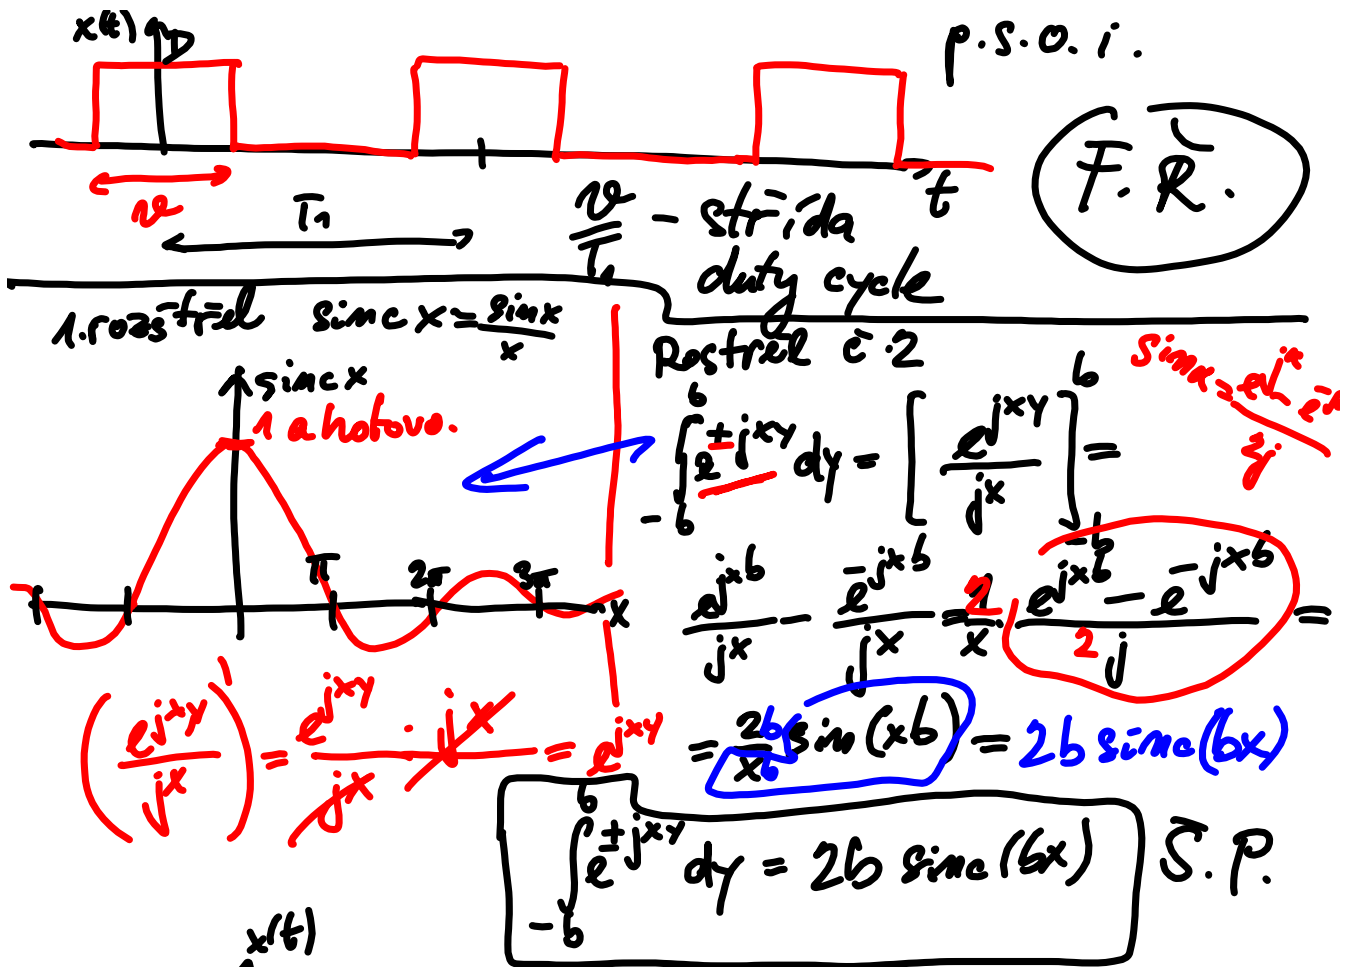 x(t) D
p.s.o.i.
F.Ř.
t
ϑ
T₁
ϑ/T₁ - střída
duty cycle
1. rozstřel sinc x = sin x / x
sinc x
1 a hotovo.
π 2π 3π x
(e^{jxy} / jx)' = e^{jxy} / jx · jx = e^{jxy}
Rostřel č.2
sin x = e^{jx} -
∫_{-b}^{b} e^{±jxy} dy = [e^{jxy} / jx]_{-b}^{b} =
e^{jxb} / jx - e^{-jxb} / jx = 2/x · (e^{jxb} - e^{-jxb}) / 2j =
= 2b/xb sin(xb) = 2b sinc(bx)
∫_{-b}^{b} e^{±jxy} dy = 2b sinc(bx) Š.P.
x(t)